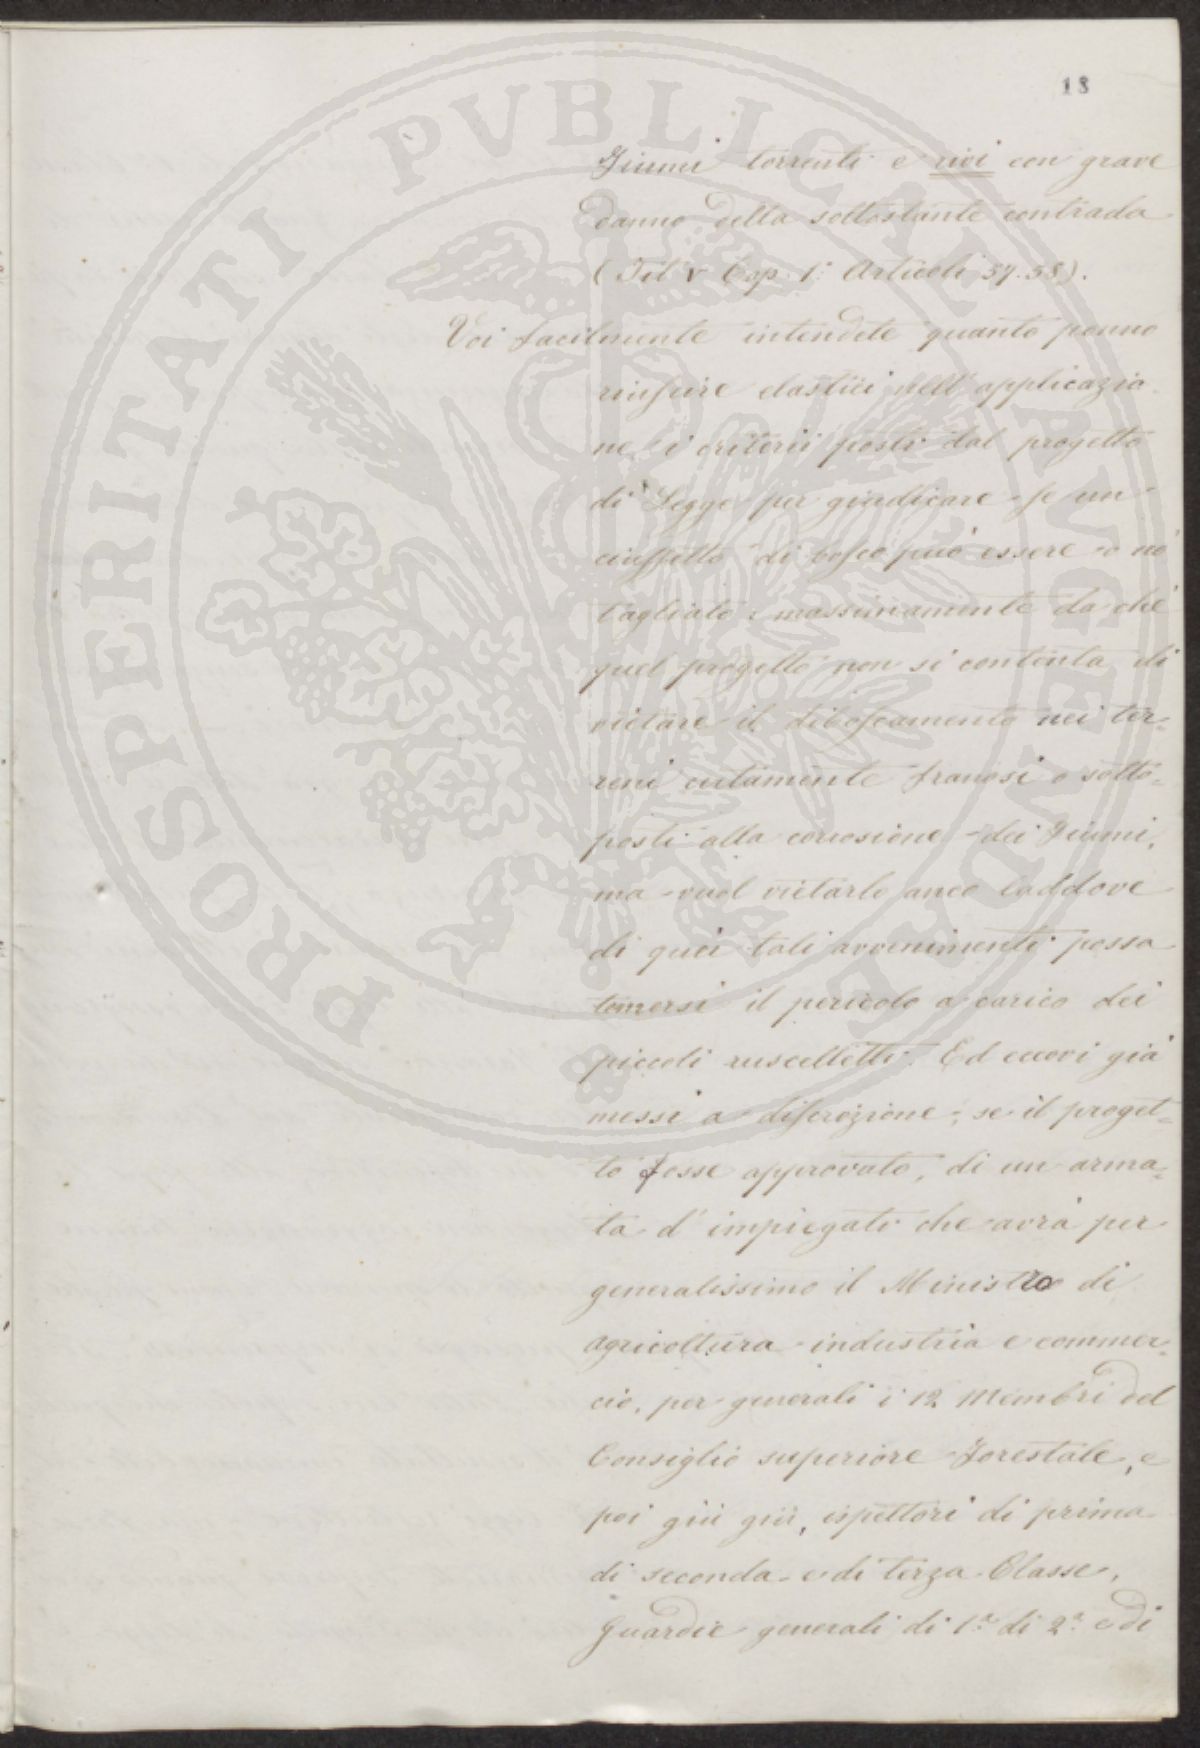 18
Fiumi torrenti e rivi con grave
danno della sottostante contrada
(Tit V Cap. 1° Articoli 57.58).
Voi facilmente intendete quanto ponno
riuscire elastici nell'applicazio
ne i criterii posti dal progetto
di Legge per giudicare se un
ciuffetto di bosco può essere o nò
tagliato, massimamente da che
quel progetto non si contenta di
vietare il diboscamento nei ter=
reni certamente franosi o sotto=
posti alla corrosione dei Fiumi,
ma vuol vietarlo anco laddove
di quei tali avvenimenti possa
temersi il pericolo a carico dei
piccoli ruscelletti. Ed eccovi già
messi a discrezione, se il proget=
to fosse approvato, di un arma=
ta d'impiegati che avrà per
generalissimo il Ministro di
agricoltura industria e commer=
cio, per generali i 12 Membri del
Consiglio superiore Forestale, e
poi giù giù, ispettori di prima
di seconda e di terza Classe,
Guardie generali di 1.ª di 2.ª e di
PROSPERITATI PVBLICAE AVGENDAE